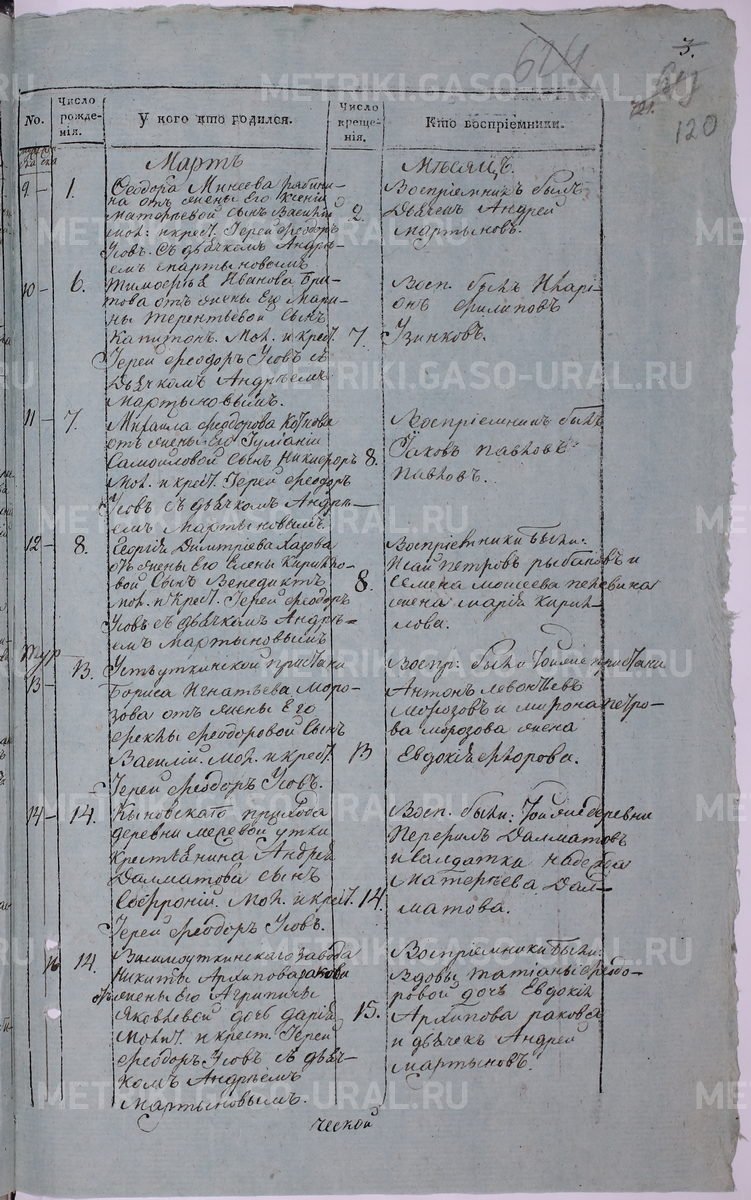 3.
624
721.
120
No.
Число рожденія.
У кого кто родился.
Число крещенія.
Кто воспріемники.
Мартъ
Мѣсяцъ.
9 —
1.
Ѳеодора Минеева рябини-
на отъ жены Его Ксеніи
матѳѣевой сынъ Василій
мол: и крест. Іерей Ѳеодоръ
Усовъ. Съ дьячкомъ Андрѣ-
емъ мартыновымъ
2.
Воспріемникъ былъ
Дьячекъ Андрей
мартыновъ.
10 —
6.
Тимоѳѣя Иванова Бри-
това отъ жены Его Мари-
ны терентьевой сынъ
Капитонъ. Мол. и крест.
Іерей Ѳеодоръ Усовъ съ
Дьячкомъ Андрѣемъ
мартыновымъ.
7.
Восп. былъ Иларі-
онъ Филиповъ
Узинковъ.
11 —
7.
Михаила Ѳеодорова
отъ жены Его Іуліаніи
Самойловой сынъ Никифоръ
Мол. и крест. Іерей Ѳеодоръ
Усовъ съ дьячкомъ Андрѣ-
емъ мартыновымъ
8.
Воспріемникъ былъ
Іаковъ павловъ
Павловъ.
12 —
8.
Георгія Димитріева Хазова
отъ жены Его Елены Кирило-
вой сынъ Венедиктъ
мол. и крест. Іерей Ѳеодоръ
Усовъ съ дьячкомъ Андрѣ-
емъ Мартыновымъ
8.
Воспріемники были:
Исаи петровъ рыбаковъ и
Семена моисеева пелевина
жена марія Кирил-
лова.
13 —
13.
Устьуткинской пристани
Бориса Игнатьева Моро-
зова отъ жены Его
Ѳеклы Ѳеодоровой сынъ
Василій. мол. и крест.
Іерей Ѳеодоръ Усовъ.
13
Воспр. были тойже пристани
Антонъ Левонтьевъ
морозовъ и мирона петро-
ва морозова жена
Евдокія Ѳедорова.
14 —
14.
Кыновскаго прихода
деревни межевой утки
крестьянина Андрея
Далматова сынъ
Софроній. Мол. и крест.
Іерей Ѳеодоръ Усовъ.
14.
Восп. были: тойже деревни
Перфилъ Далматовъ
и салдатка надежда
матѳеева Дал-
матова.
14.
Висимоуткинскаго завода
Никиты Архипова
жены Его Агрипины
Яковлевой дочь дарія
Молит. и крест. Іерей
Ѳеодоръ Усовъ съ дьяч-
комъ Андрѣемъ
мартыновымъ.
15.
Воспріемники были:
Вдовы татіаны Ѳеодо-
ровой дочь Евдокія
Архипова ракова
и дьячекъ Андрей
мартыновъ.
ческой
METRIKI.GASO-URAL.RU